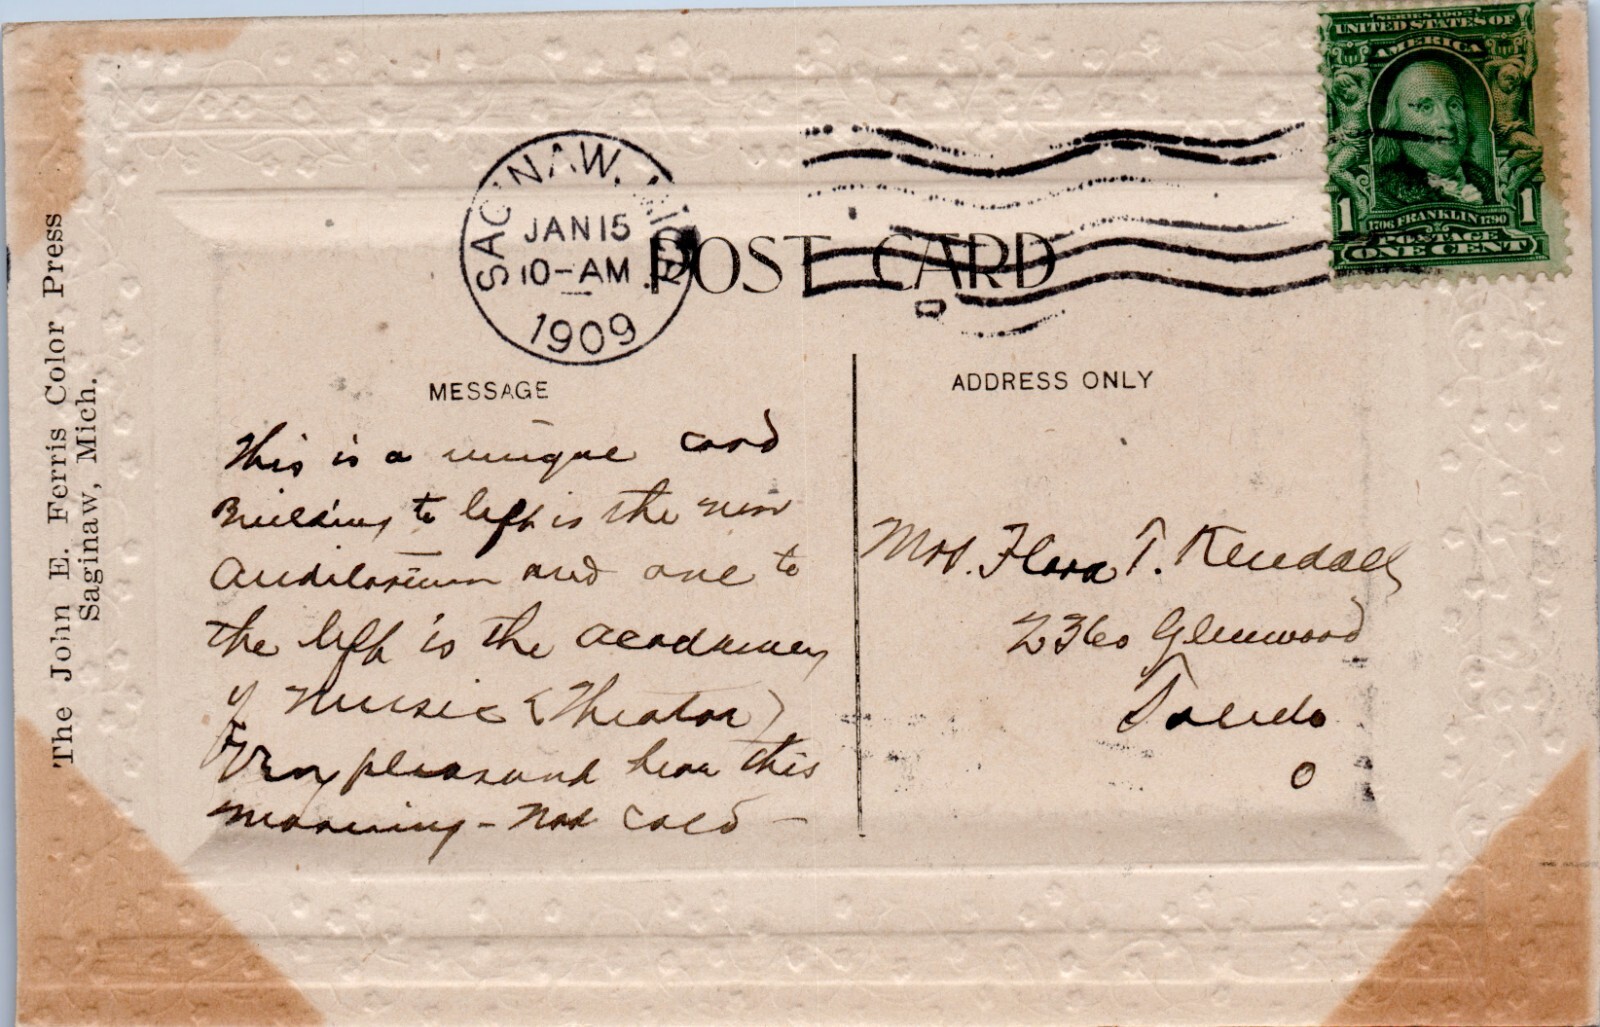 SERIES 1902
UNITED STATES OF
AMERICA
1 FRANKLIN 1
1706 1790
POSTAGE
ONE CENT
SAGINAW, MICH.
JAN 15
10-AM
1909
POST CARD
MESSAGE
This is a unique card
Building to left is the new
Auditorium and one to
the left is the Academy
of Music (Theator)
Very pleasand hear this
morning - not cold -
ADDRESS ONLY
Mrs. Flora T. Kendall
2360 Glenwood
Toledo
O
The John E. Ferris Color Press
Saginaw, Mich.